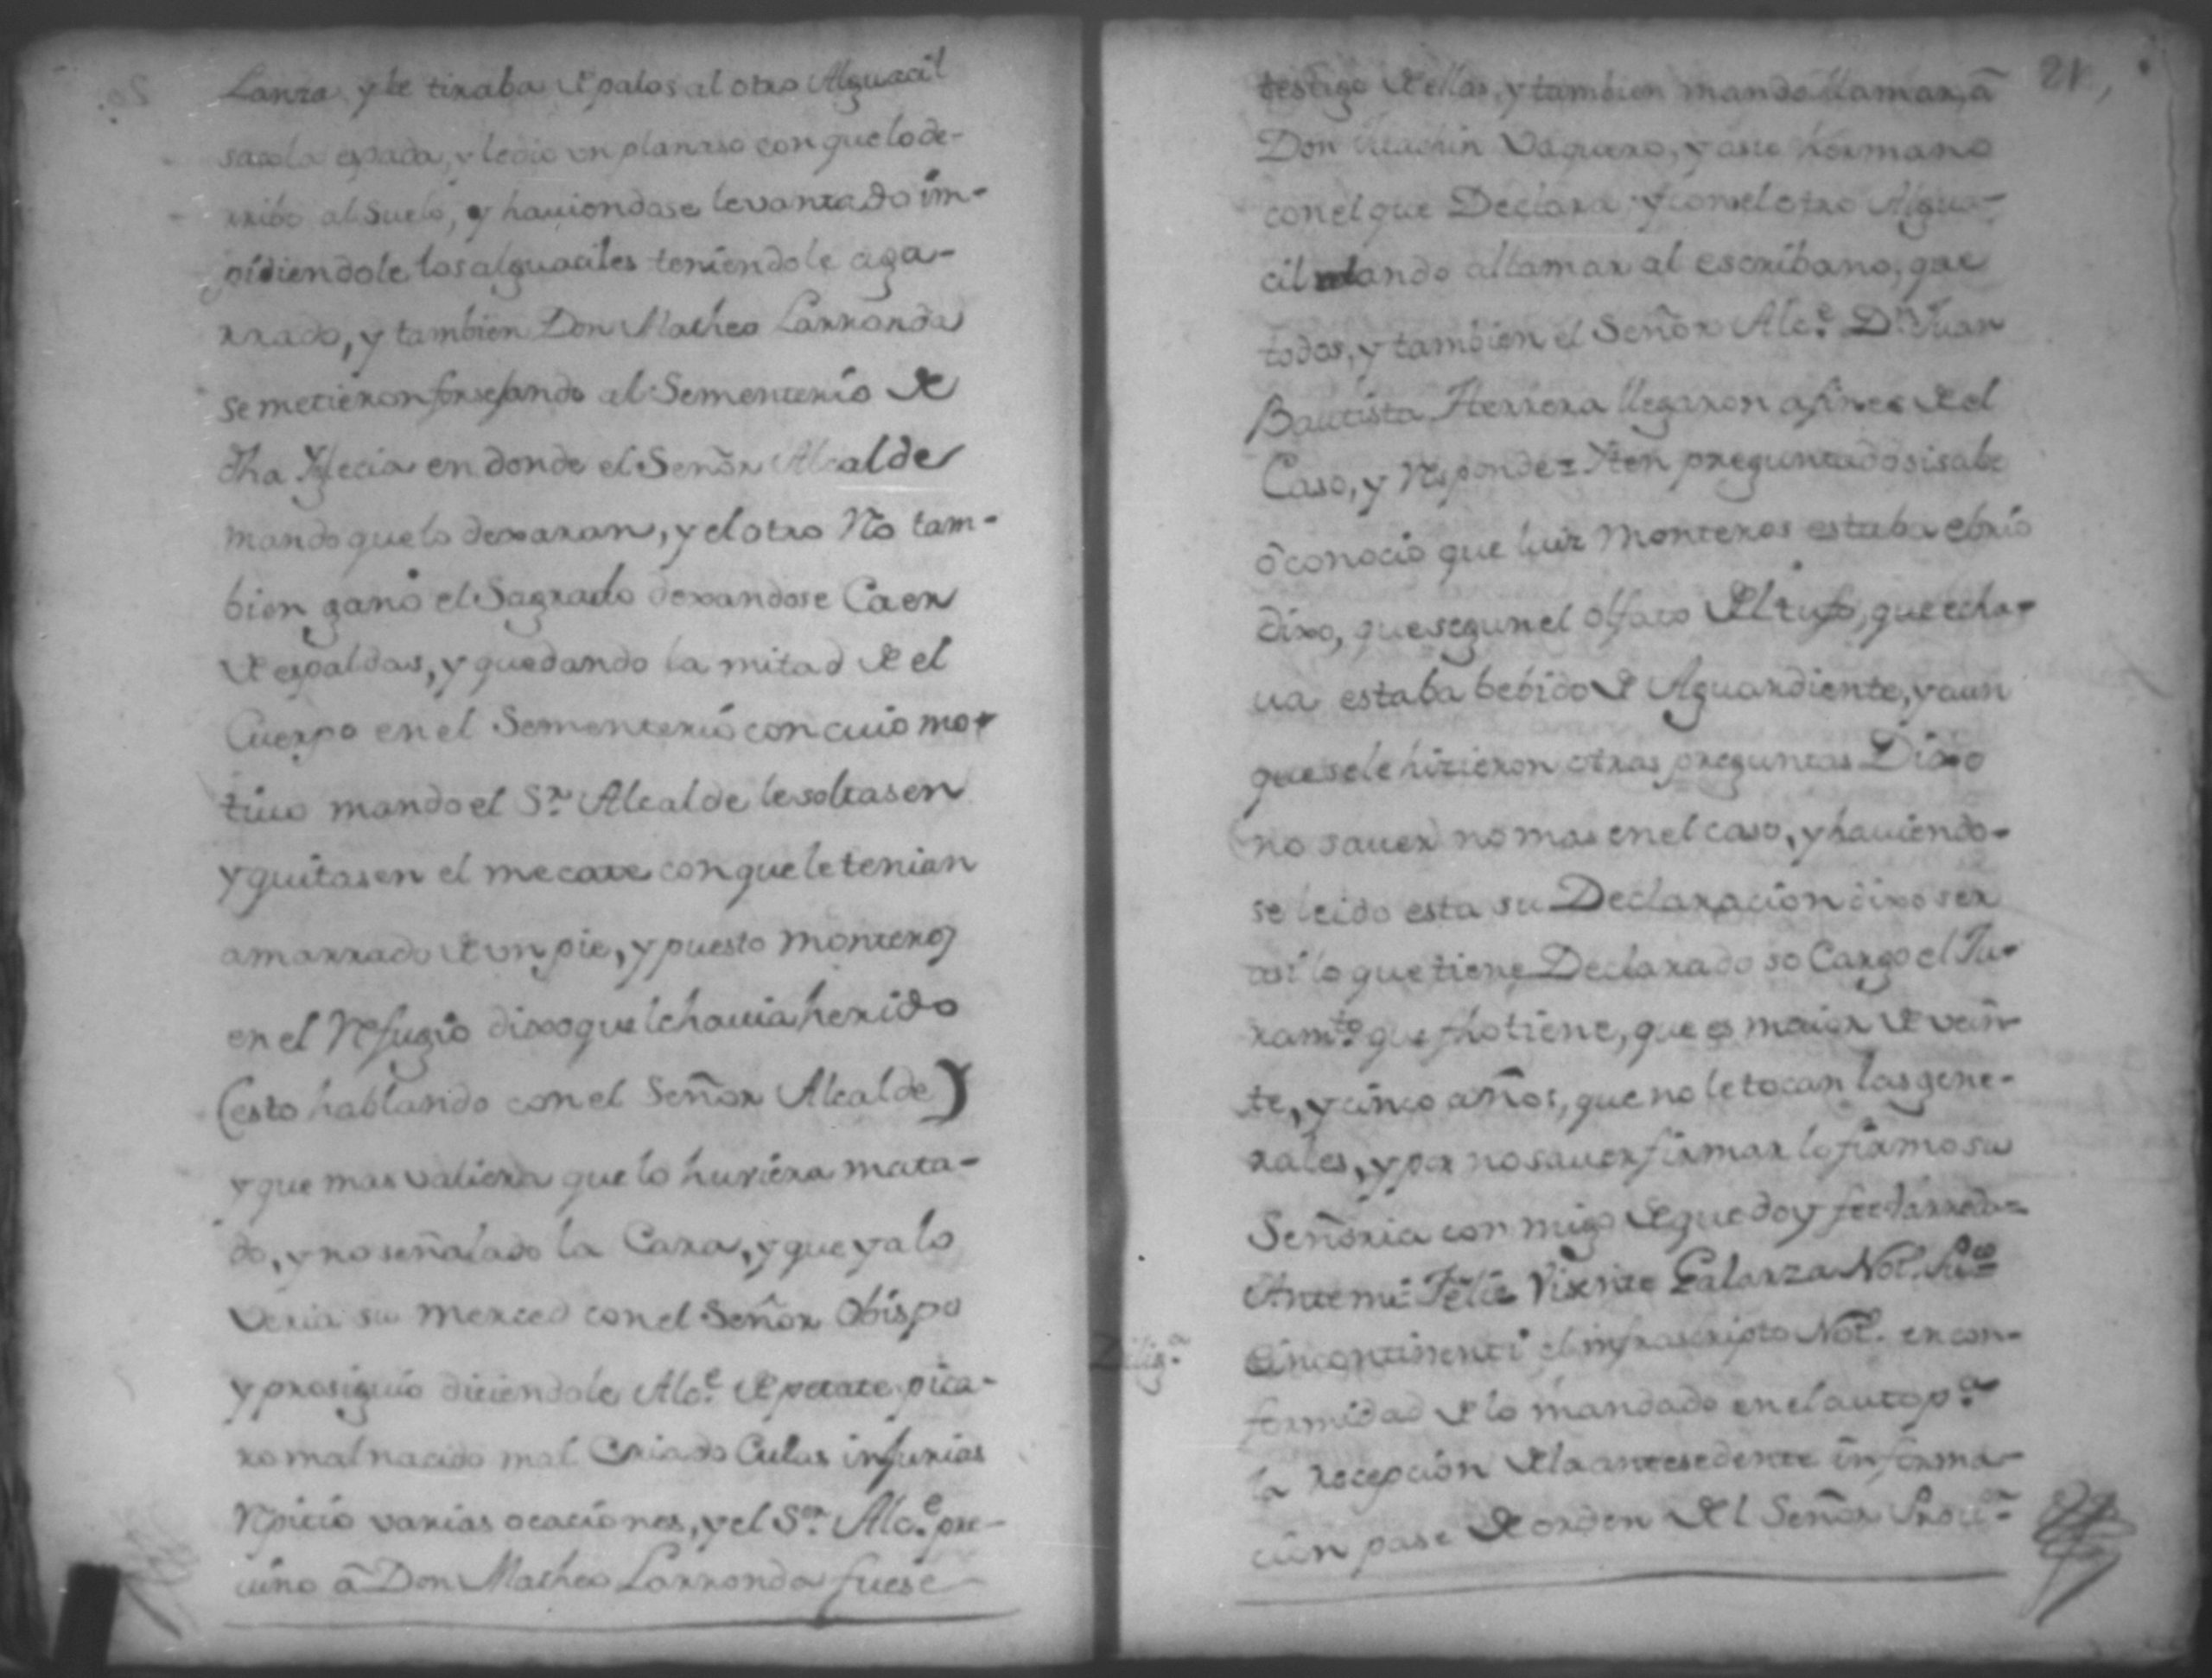 Lanza, y le tiraba de palos al otro Alguacil
saco la espada, y le dio un planaso con que lo de-
rribo al suelo, y hauiendose levantado im-
pidiendole los alguaciles teniendole aga-
rrado, y tambien Don Matheo Larronda
se metieron forsejando al Sementerio de
dha Yglecia en donde el Señor Alcalde
mando que lo dexaran, y el otro Ro tam-
bien ganó el Sagrado dexandose Caer
de espaldas, y quedando la mitad de el
Cuerpo en el Sementerio con cuio mo-
tiuo mando el Sr. Alcalde le soltasen
y quitasen el mecate con que le tenian
amarrado de un pie, y puesto Monteros
en el Refugio dixo que le hauia herido
(esto hablando con el Señor Alcalde)
y que mas valiera que lo huviera mata-
do, y no señalado la Cara, y que ya lo
veria su merced con el Señor Obispo
y prosiguio diciendole Alce. de petate pica-
ro mal nacido mal Criado Cuias injurias
Repitio varias ocaciones, y el Sor. Alce. pre-
uino á Don Matheo Larronda fuese
21,
testigo de ellas, y tambien mando llamar, á
Don Vaquero, y a este hermano
con el que Declara, y con el otro Algua-
cil mando a llamar al escribano, que
todos, y tambien el Señor Alce. Dn. Juan
Bautista Herrera llegaron a fines de el
Caso, y Responde = Yten preguntado si sabe
ó conocio que Luiz Monteros estaba ebrio
dixo, que segun el olfato del tufo, que echa-
ua estaba bebido de Aguardiente, y aun
que se le hizieron otras preguntas Dixo
no sauer no mas en el caso, y hauiendo-
se leido esta su Declaracion dixo ser
asi lo que tiene Declarado so Cargo el Ju-
ramto. que fho tiene, que es maior de vein-
te, y cinco años, que no le tocan las gene-
rales, y por no sauer firmar lo firmo su
Señoria con migo de que doy fee =
Ante mi = Felis Vicente Galarza Not. Puco =
Dilig.a
Yncontinenti el infrascripto Not. en con-
formidad de lo mandado en el auto pa.
la recepcion de la antesedente informa-
cion pase de orden del Señor